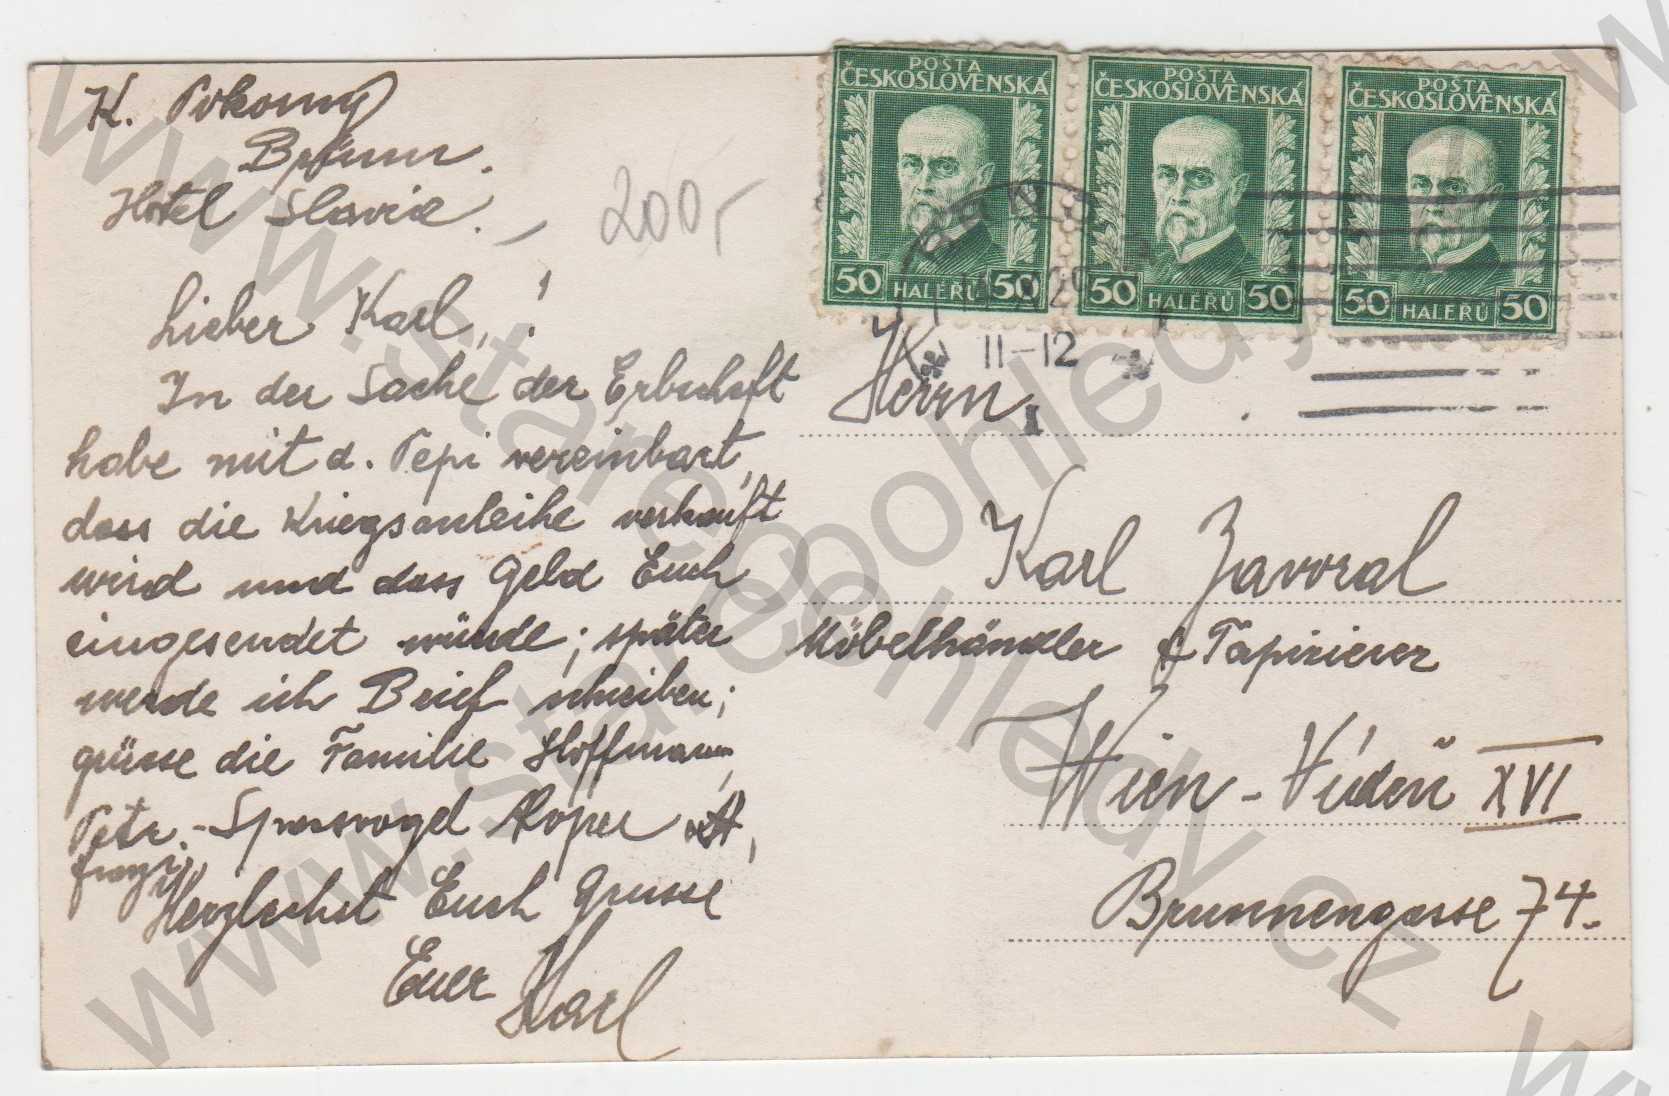 K. Pokorny
Brünn.
Hotel Slavia.
200,-
Lieber Karl,!
In der Sache der Erbschaft
habe mit d. Pepi vereinbart,
dass die Kriegsanleihe verkauft
wird und dass Geld Euch
eingesendet würde; später
werde ich Brief schreiben;
grüsse die Familie Hoffmann,
Petr.-Spassvogel
Herzlichst Euch Grusse
Euer Karl
POSTA
ČESKOSLOVENSKÁ
50 HALÉŘŮ 50
POSTA
ČESKOSLOVENSKÁ
50 HALÉŘŮ 50
POSTA
ČESKOSLOVENSKÁ
50 HALÉŘŮ 50
BRNO
11-12
1
Herrn
Karl Zavoral
Möbelhändler & Tapizierer
Wien - Vídeň XVI
Brunnengasse 74.
www.starepohledy.cz
www.starepohledy.cz